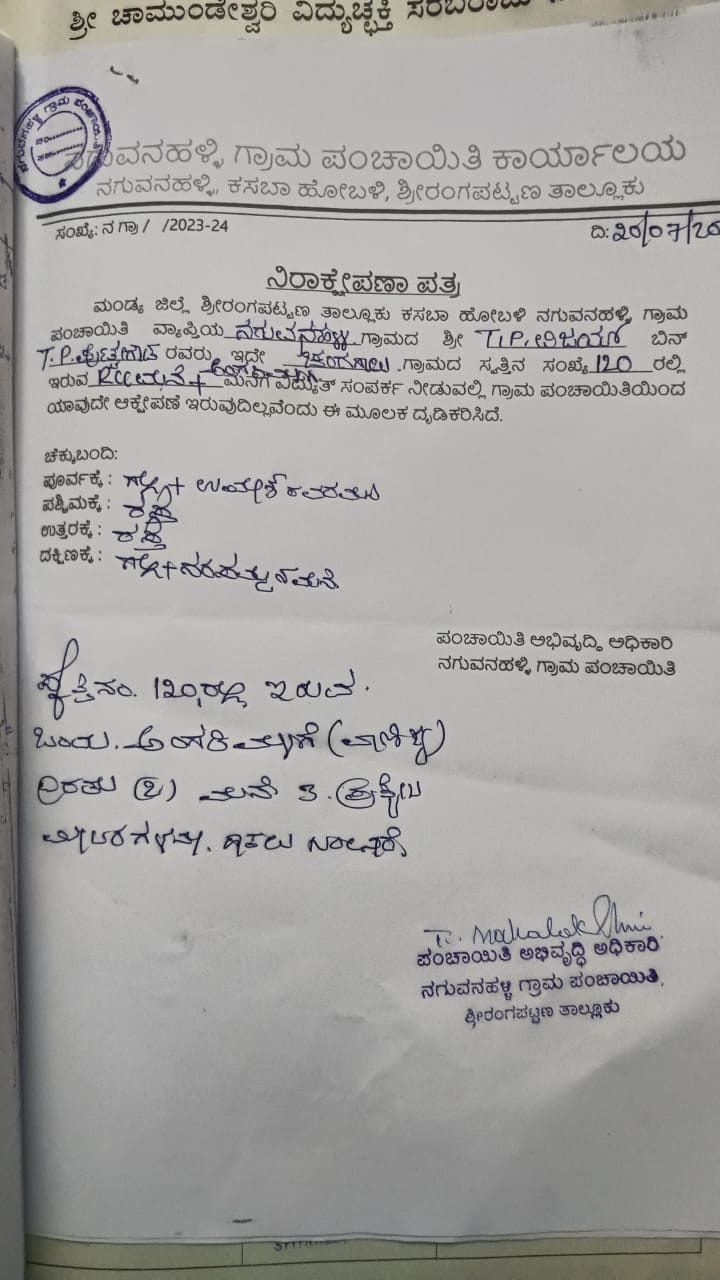 ಶ್ರೀ ಚಾಮುಂಡೇಶ್ವರಿ ವಿದ್ಯುಚ್ಛಕ್ತಿ ಸರಬರಾಜು
ನಗುವನಹಳ್ಳಿ ಗ್ರಾಮ ಪಂಚಾಯಿತಿ ಕಾರ್ಯಾಲಯ
ನಗುವನಹಳ್ಳಿ, ಕಸಬಾ ಹೋಬಳಿ, ಶ್ರೀರಂಗಪಟ್ಟಣ ತಾಲ್ಲೂಕು
ಸಂಖ್ಯೆ: ನಗ್ರಾ/ /2023-24 ದಿ: 20/07/20
ನಿರಾಕ್ಷೇಪಣಾ ಪತ್ರ
ಮಂಡ್ಯ ಜಿಲ್ಲೆ ಶ್ರೀರಂಗಪಟ್ಟಣ ತಾಲ್ಲೂಕು ಕಸಬಾ ಹೋಬಳಿ ನಗುವನಹಳ್ಳಿ ಗ್ರಾಮ
ಪಂಚಾಯಿತಿ ವ್ಯಾಪ್ತಿಯ ನಗುವನಹಳ್ಳಿ ಗ್ರಾಮದ ಶ್ರೀ T.P. ವಿಜಯ ಬಿನ್
T.P. ರವರು ಇದೇ ಗ್ರಾಮದ ಸ್ವತ್ತಿನ ಸಂಖ್ಯೆ 120 ರಲ್ಲಿ
ಇರುವ RCC ಮನೆ + ಮನೆಗೆ ವಿದ್ಯುತ್ ಸಂಪರ್ಕ ನೀಡುವಲ್ಲಿ ಗ್ರಾಮ ಪಂಚಾಯಿತಿಯಿಂದ
ಯಾವುದೇ ಆಕ್ಷೇಪಣೆ ಇರುವುದಿಲ್ಲವೆಂದು ಈ ಮೂಲಕ ದೃಡಿಕರಿಸಿದೆ.
ಚೆಕ್ಕುಬಂದಿ:
ಪೂರ್ವಕ್ಕೆ : ಗಲ್ಲಿ +
ಪಶ್ಚಿಮಕ್ಕೆ : ರಸ್ತೆ
ಉತ್ತರಕ್ಕೆ : ರಸ್ತೆ
ದಕ್ಷಿಣಕ್ಕೆ : ಗಲ್ಲಿ + ಮನೆ
ಪಂಚಾಯಿತಿ ಅಭಿವೃದ್ಧಿ ಅಧಿಕಾರಿ
ನಗುವನಹಳ್ಳಿ ಗ್ರಾಮ ಪಂಚಾಯಿತಿ
ಸ್ವತ್ತಿನ ನಂ. 120 ರಲ್ಲಿ ಇರುವ.
ಒಂದು. ಅಂಗಡಿ ಮಳಿಗೆ (ವಾಣಿಜ್ಯ)
(2) ಮನೆ 3. ಪ್ರತ್ಯೇಕ
ಪಂಚಾಯಿತಿ ಅಭಿವೃದ್ಧಿ ಅಧಿಕಾರಿ.
ನಗುವನಹಳ್ಳಿ ಗ್ರಾಮ ಪಂಚಾಯಿತಿ,
ಶ್ರೀರಂಗಪಟ್ಟಣ ತಾಲ್ಲೂಕು